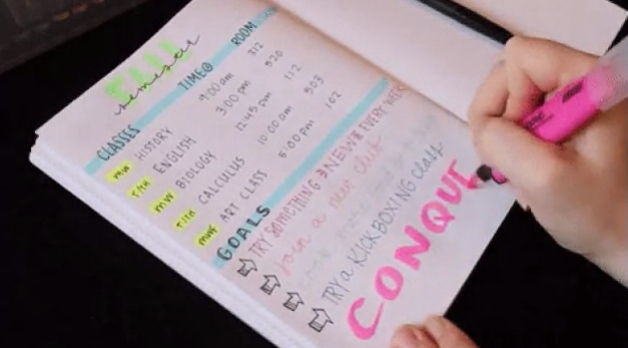 FALL
semester
CLASSES TIME@ ROOM
MW HISTORY 9:00 am 312
T/TH ENGLISH 3:00 pm 920
MW BIOLOGY 12:45 pm 112
T/TH CALCULUS 10:00 am 903
MWF ART CLASS 5:00 pm 102
GOALS
TRY SOMETHING NEW EVERY WEEK
Join a new club
TRY a KICKBOXING class
CONQUE